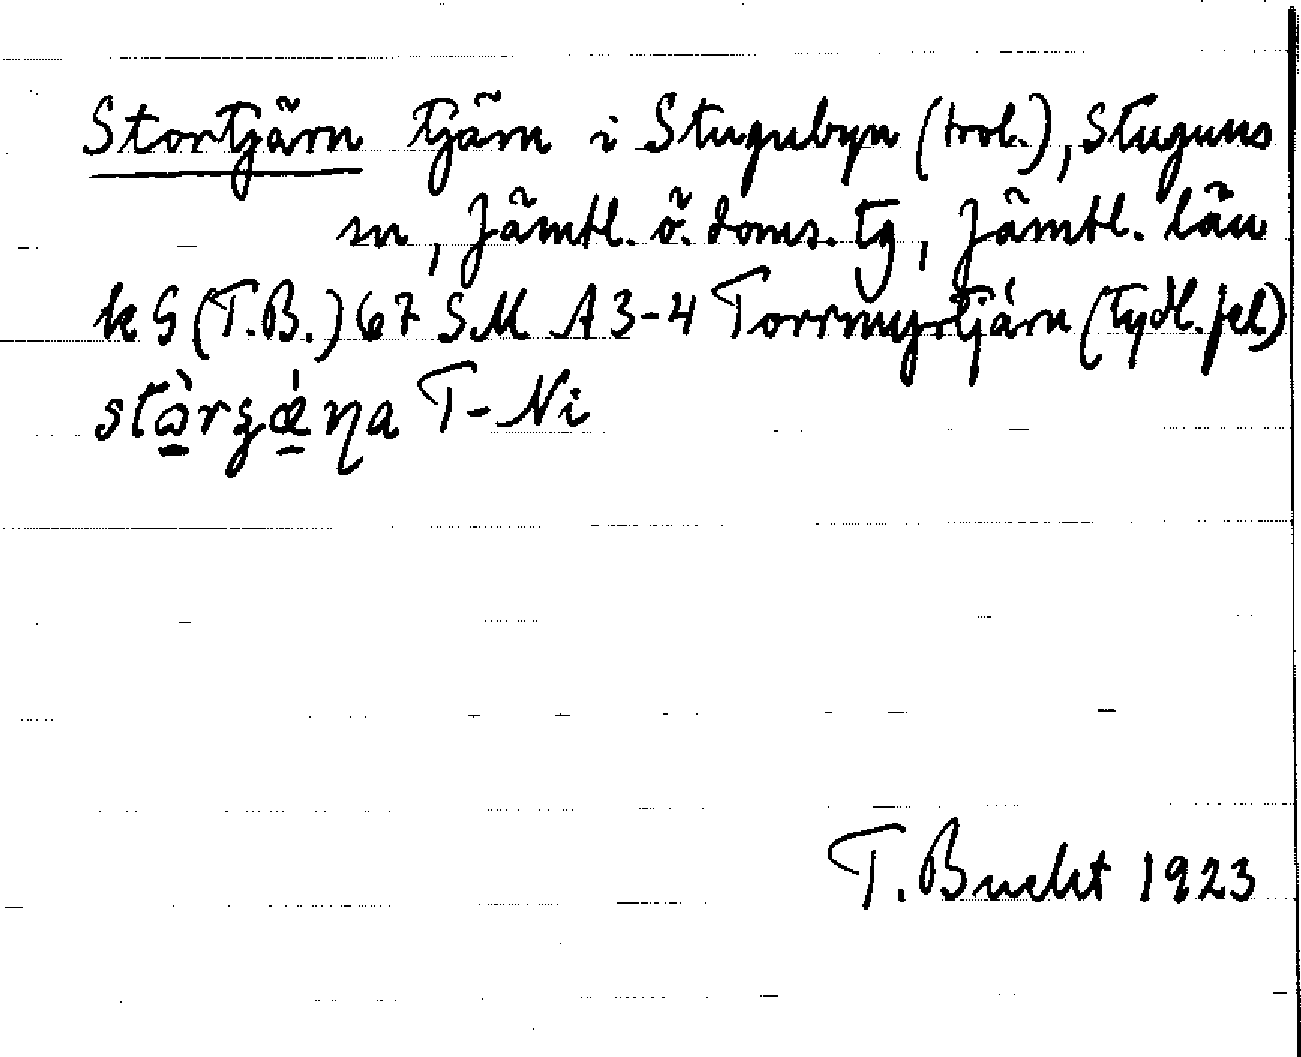 Stortjärn tjärn i Stugubyn (trol.), Stuguns
sn, Jämtl. ö. doms. tg, Jämtl. län
k G (T.B.) 67 SM A3-4 Torrmyrtjärn (tydl. fel)
T-Ni
T. Bucht 1923